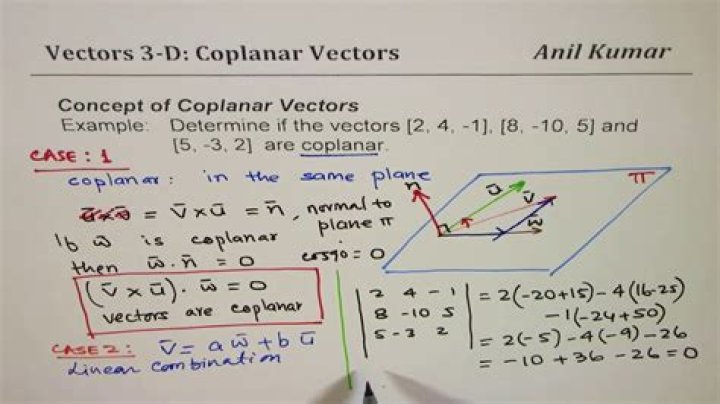 Vectors 3-D: Coplanar Vectors Anil Kumar
Concept of Coplanar Vectors
Example: Determine if the vectors [2, 4, -1], [8, -10, 5] and
[5, -3, 2] are coplanar.
CASE: 1
coplanar: in the same plane
= v̄×ū = n̄, normal to
plane π
If w̄ is coplanar
then w̄·n̄ = 0 cos90 = 0
(v̄×ū)·w̄ = 0
vectors are coplanar
CASE 2: v̄ = a w̄ + b ū
Linear combination
n ū v̄ w̄ π
2 4 -1 = 2(-20+15) - 4(16-25)
8 -10 5 -1(-24+50)
5 -3 2 = 2(-5) - 4(-9) - 26
= -10 + 36 - 26 = 0